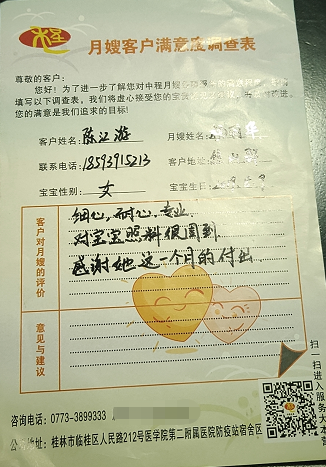 月嫂客户满意度调查表
尊敬的客户:
您好!为了进一步了解您对中程月嫂
填写以下调查表。我们将虚心接受您的宝贵
您的满意是我们追求的目标!
客户姓名: 陈江游 月嫂姓名:
联系电话: 18593915213 客户地址:
宝宝性别: 女 宝宝生日:
客户对月嫂的评价
细心,耐心,专业.
对宝宝照料很周到
感谢她这一个月的付出
意见与建议
扫一扫进入服务大本营
咨询电话: 0773-3899333
公司地址: 桂林市临桂区人民路212号医学院第二附属医院防疫站宿舍区